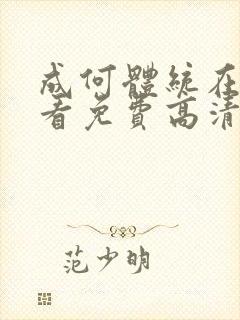 成何體統在
看免費高清
范少明